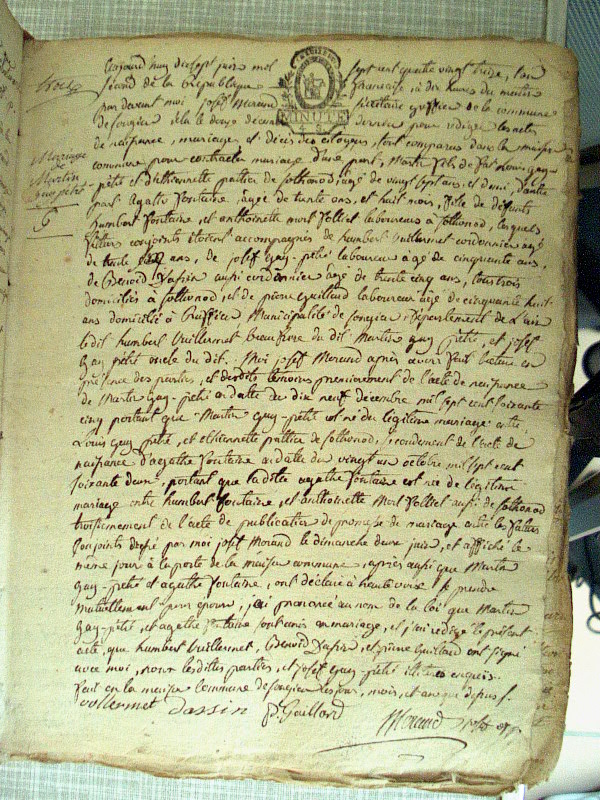 aujourd'huy dix sept juin mil sept cent quatre vingt treize, l'an
second de la République française à dix heures du matin
par devant moi josef Morand secrétaire greffier de la commune
de songieu élu le douze décembre dernier pour rédiger les actes
MINUTE
de naissance, mariage, et décès des citoyens, sont comparus dans la maison
Mariage
de
Martin
Guy-petit
commune pour contracter mariage d'une part, Martin fils de Louis guy
petit et d'Ethiennette pattice de Sothonod, agé de vingt sept ans, et demi, d'autre
part agatte fontaine agée de trente ans, et huit mois, fille de défunts
humbert fontaine, et anthoinette Mort folliet laboureurs à Sothonod, lesquels
futurs conjoints étoient accompagnés de humbert Vuillermet cordonnier agé
de trente ans, de josef Guy-petit laboureur agé de cinquante ans,
de Benoid Dassin aussi cordonnier agé de trente cinq ans, tous trois
domiciliés à Sothonod, et de pierre Guilland laboureur agé de cinquante huit
ans domicilié à Ruffieu Municipalité de songieu Département de l'ain
ledit humbert Vuillermet beaufrere du dit Martin guy petit, et josef
Guy petit oncle du dit. Moi josef Morand après avoir fait lecture en
présence des parties, et desdits témoins premierement de l'acte de naissance
de Martin Guy-petit en datte du dix neuf décembre mil sept cent soixante
cinq portant que Martin Guy-petit est né du légitime mariage entre
Louis guy petit, et ethiennette pattice de sothonod, secondement de l'acte de
naissance d'agathe fontaine en datte du vingt un octobre mil sept cent
soixante deux, portant que ladite agathe fontaine est née de légitime
mariage entre humbert fontaine, et anthoinette Mort folliet aussi de sothonod
troisiemement de l'acte de publication de promesse de mariage entre les futurs
conjoints dressé par moi josef Morand le dimanche deux juin, et affiché le
meme jour à la porte de la maison commune, après aussi que Martin
guy-petit et agathe fontaine, ont déclaré à haute voix se prendre
mutuellement pour époux, j'ai prononcé au nom de la loi que Martin
Guy-petit, et agathe fontaine sont unis en mariage, et j'ai redigé le présent
acte, que humbert Vuillermet, Benoid Dassin, et pierre Guilland ont signé
avec moi, non lesdittes parties, et josef guy petit illitérés enquis.
fait en la maison commune de songieu les jour, mois, et an que dessus.
vollermet dassin P. Guilland
Morand